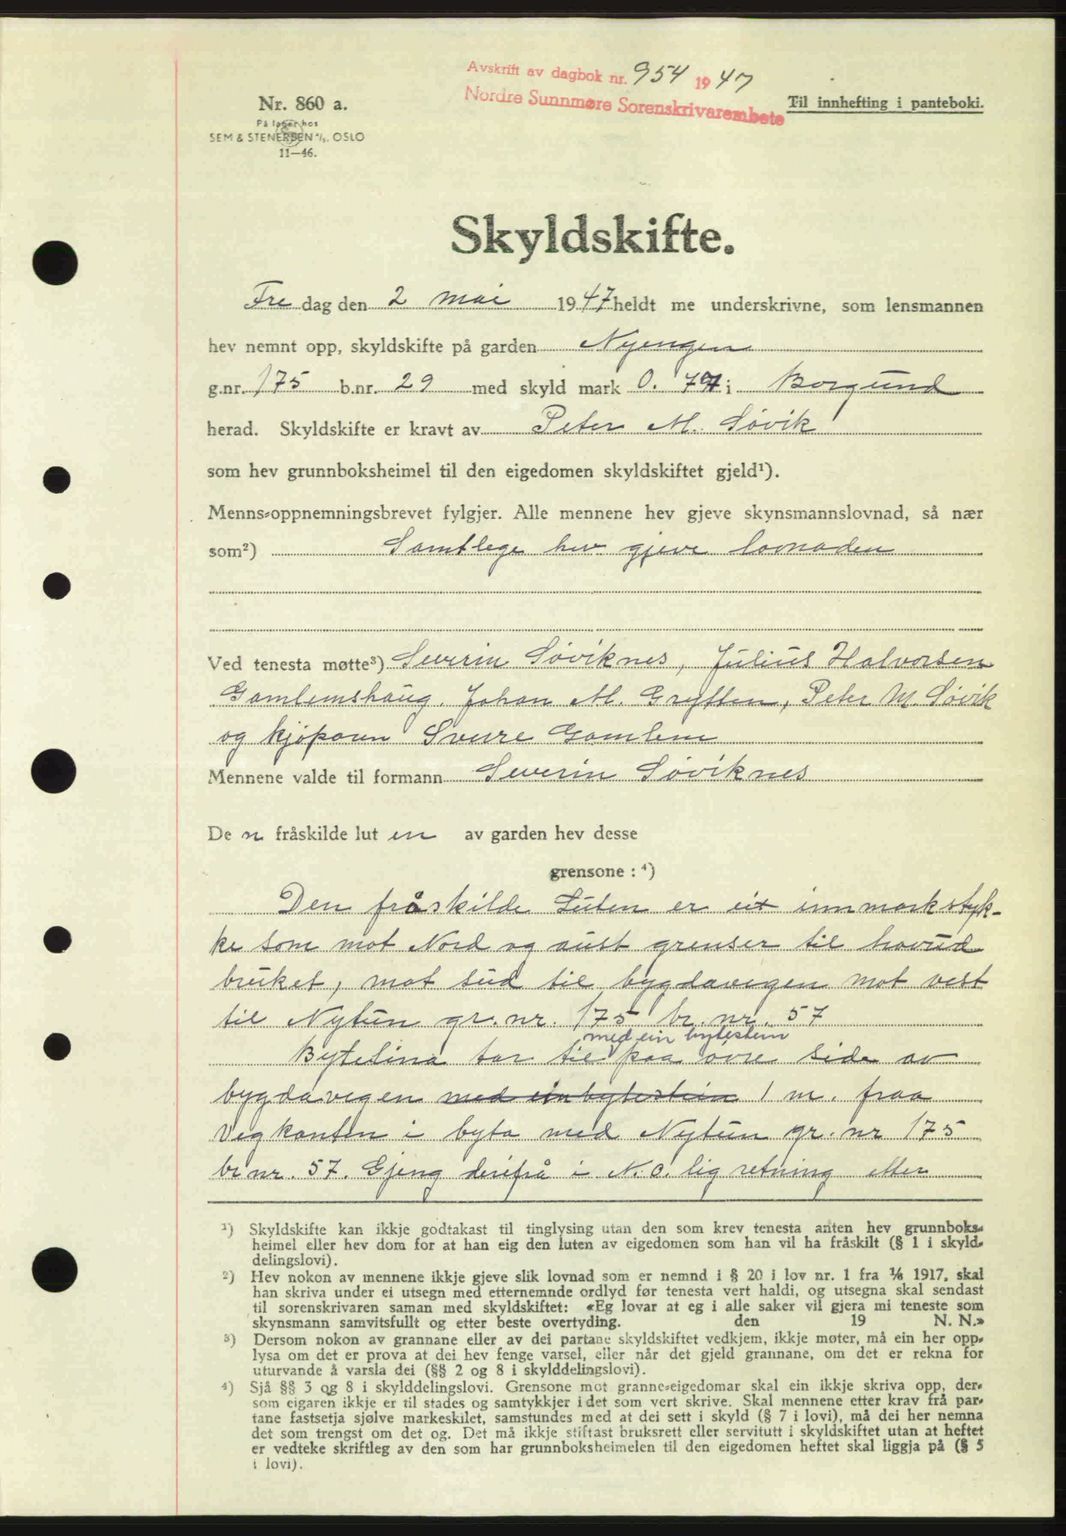 Avskrift av dagbok nr. 954 1947
Nordre Sunnmøre Sorenskrivarembete
Nr. 860 a.
På lager hos
SEM & STENERSEN A/S. OSLO
11—46.
Til innhefting i panteboki.
Skyldskifte.
Fre dag den 2 mai 1947 heldt me underskrivne, som lensmannen
hev nemnt opp, skyldskifte på garden Nyengen
g.nr. 175 b.nr. 29 med skyld mark 0. 77 i Borgund
herad. Skyldskifte er kravt av Peter M. Søvik
som hev grunnboksheimel til den eigedomen skyldskiftet gjeld¹).
Menns-oppnemningsbrevet fylgjer. Alle mennene hev gjeve skynsmannslovnad, så nær
som²) Samtlege hev gjeve lovnaden
Ved tenesta møtte³) Severin Søviknes, Julius Halvorsen
Gamlemshaug. Johan M. Grytten, Peter M. Søvik
og kjøparen Sverre Gamlem
Mennene valde til formann Severin Søviknes
De n fråskilde lut en av garden hev desse
grensone : ⁴)
Den fråskilde Luten er eit innmarkstyk-
ke som mot Nord og aust grenser til hovud
bruket, mot sud til bygdavegen mot vest
til Nytun gr. nr. 175 br. nr. 57
med ein bytestein
Bytelina tar til paa øvre side av
bygdavegen med ein bytestein 1 m. fraa
vegkanten i byta med Nytun gr. nr 175
br nr. 57. Gjeng derifrå i N. O. lig retning etter
¹) Skyldskifte kan ikkje godtakast til tinglysing utan den som krev tenesta anten hev grunnboks-
heimel eller hev dom for at han eig den luten av eigedomen som han vil ha fråskilt (§ 1 i skyld-
delingslovi).
²) Hev nokon av mennene ikkje gjeve slik lovnad som er nemnd i § 20 i lov nr. 1 fra 1/6 1917, skal
han skriva under ei utsegn med etternemnde ordlyd før tenesta vert haldi, og utsegna skal sendast
til sorenskrivaren saman med skyldskiftet: «Eg lovar at eg i alle saker vil gjera mi teneste som
skynsmann samvitsfullt og etter beste overtyding. den 19 N. N.»
³) Dersom nokon av grannane eller av dei partane skyldskiftet vedkjem, ikkje møter, må ein her opp-
lysa om det er prova at dei hev fenge varsel, eller når det gjeld grannane, om det er rekna for
uturvande å varsla dei (§§ 2 og 8 i skylddelingslovi).
⁴) Sjå §§ 3 og 8 i skylddelingslovi. Grensone mot granne-eigedomar skal ein ikkje skriva opp, der-
som eigaren ikkje er til stades og samtykkjer i det som vert skrive. Skal mennene etter krav frå par-
tane fastsetja sjølve markeskilet, samstundes med at dei sett i skyld (§ 7 i lovi), må dei her nemna
det som trengst om det og. Det må ikkje stiftast bruksrett eller servitutt i skyldskiftet utan at heftet
er vedteke skriftleg av den som har grunnboksheimelen til den eigedomen heftet skal liggja på (§ 5
i lovi).